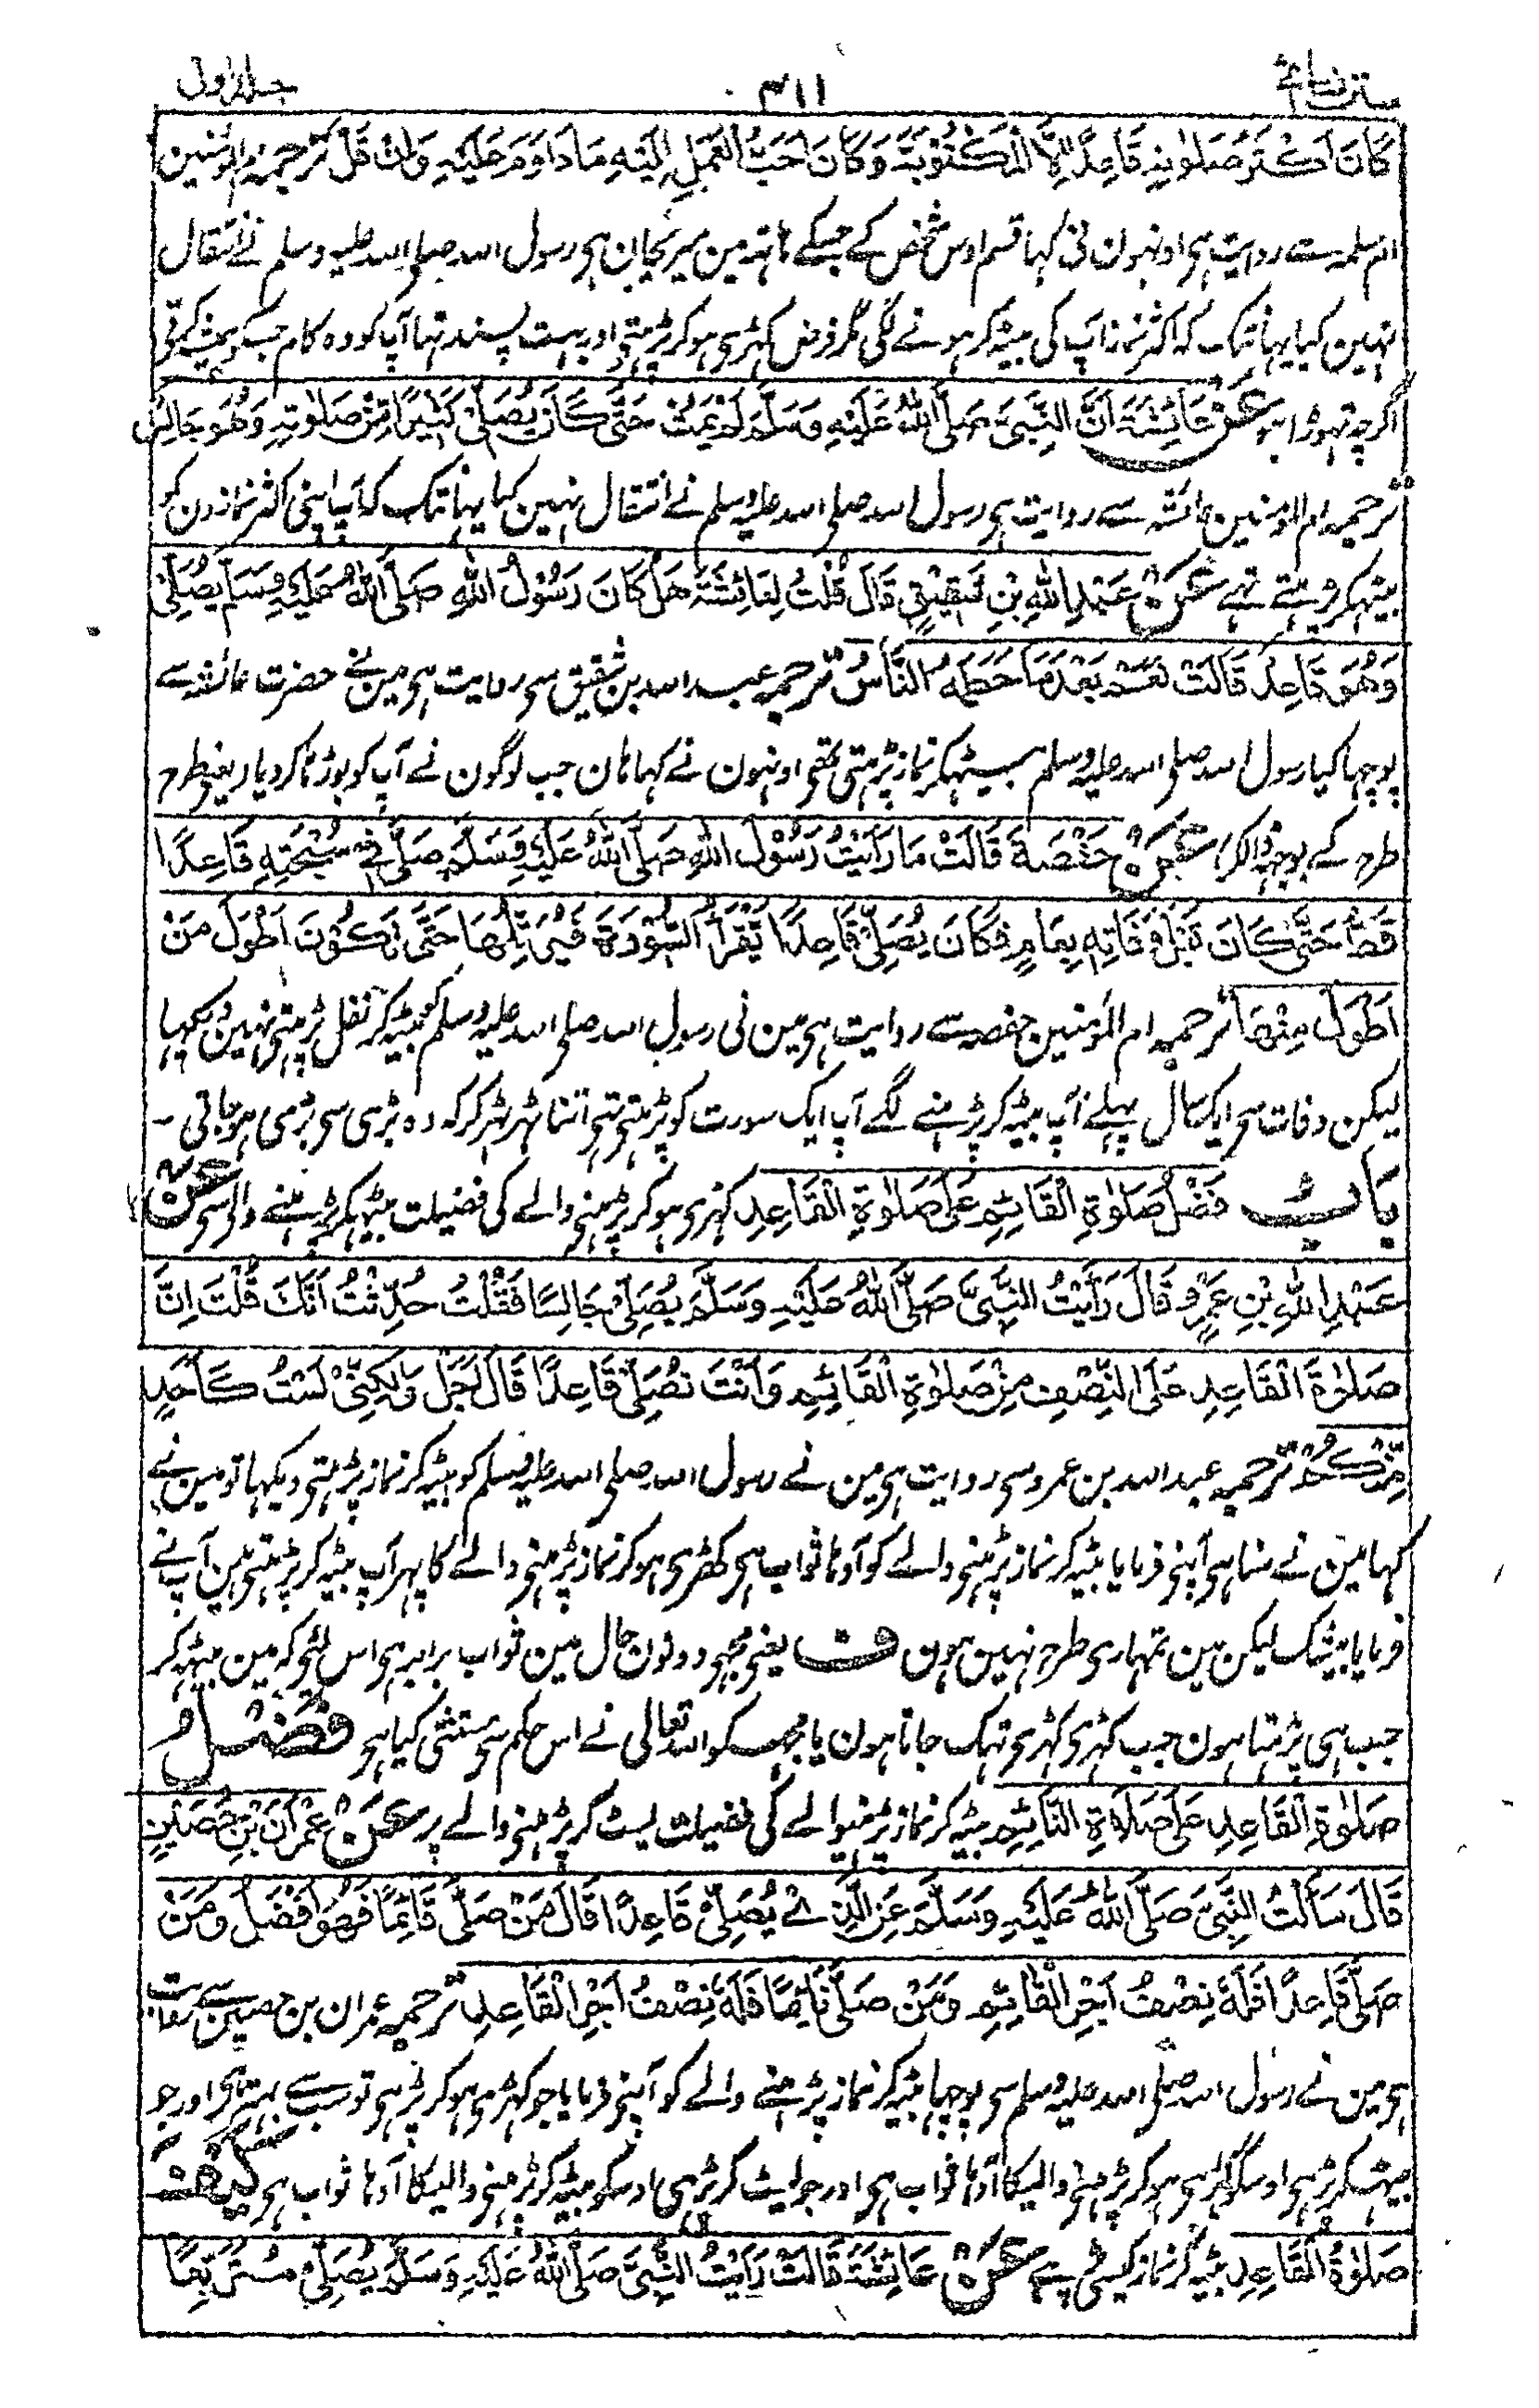 سنن نسائے ۳۱۱ جلد اول
كَانَ اَكْثَرُ صَلٰوتِهٖ قَاعِدًا اِلَّا الْمَكْتُوْبَةَ وَكَانَ اَحَبُّ الْعَمَلِ اِلَيْهِ مَا دَاوَمَ عَلَيْهِ وَاِنْ قَلَّ ترجمہ ام المؤمنین
ام سلمہ سے روایت ہی اونہون نی کہا قسم اوس شخص کے جسکے ہاتہ مین میری جان ہی رسول اللہ صلی اللہ علیہ وسلم نے انتقال
نہین کیا یہانتک کہ اکثر نماز آپ کی بیٹہ کر ہونے لگی مگر فرض کہڑی ہو کر پڑہتی اور بہت پسند تہا آپ کو وہ کام جسکو ہمیشہ کرتی
اگرچہ تہوڑا ہو عَنْ عَائِشَةَ اَنَّ النَّبِيَّ صَلَّى اللهُ عَلَيْهِ وَسَلَّمَ لَمْ يَمُتْ حَتّٰى كَانَ يُصَلِّيْ كَثِيْرًا مِّنْ صَلٰوتِهٖ وَهُوَ جَالِسٌ
ترجمہ ام المؤمنین عائشہ سے روایت ہی رسول اللہ صلی اللہ علیہ وسلم نے انتقال نہین کیا یہانتک کہ آپ اپنی اکثر نمازون کو
بیٹہکر پڑہتے تہے عَنْ عَبْدِ اللهِ بْنِ شَقِيْقٍ قَالَ قُلْتُ لِعَائِشَةَ هَلْ كَانَ رَسُوْلُ اللهِ صَلَّى اللهُ عَلَيْهِ وَسَلَّمَ يُصَلِّيْ
وَهُوَ قَاعِدٌ قَالَتْ نَعَمْ بَعْدَ مَا حَطَمَهُ النَّاسُ ترجمہ عبد اللہ بن شقیق سی روایت ہی مین نے حضرت عائشہ سے
پوچہا کیا رسول اللہ صلی اللہ علیہ وسلم بیٹہکر نماز پڑہتی تہی اونہون نے کہا ہان جب لوگون نے آپ کو بوڑہا کر دیا ریعنی طرح
طرح کے بوجہ ڈالکر) عَنْ حَفْصَةَ قَالَتْ مَا رَاَيْتُ رَسُوْلَ اللهِ صَلَّى اللهُ عَلَيْهِ وَسَلَّمَ صَلّٰى فِيْ سُبْحَتِهٖ قَاعِدًا
قَطُّ حَتّٰى كَانَ قَبْلَ وَفَاتِهٖ بِعَامٍ فَكَانَ يُصَلِّيْ قَاعِدًا يَقْرَاُ السُّوْرَةَ فَيُرَتِّلُهَا حَتّٰى تَكُوْنَ اَطْوَلَ مِنْ
اَطْوَلَ مِنْهَا ترجمہ ام المؤمنین حفصہ سے روایت ہی مین نی رسول اللہ صلی اللہ علیہ وسلم کو بیٹہ کر نفل پڑہتی نہین دیکہا
لیکن وفات سی ایکسال پہلے آپ بیٹہ کر پڑہنے لگے آپ ایک سورت کو پڑہتی تہی اتنا ٹہر ٹہر کر کہ وہ بڑی سی بڑی ہو جاتی ۔
بَابُ فَضْلِ صَلٰوةِ الْقَائِمِ عَلٰى صَلٰوةِ الْقَاعِدِ کہڑی ہو کر پڑہنی والے کی فضیلت بیٹہکر پڑہنے والی سی عَنْ
عَبْدِ اللهِ بْنِ عَمْرٍو قَالَ رَاَيْتُ النَّبِيَّ صَلَّى اللهُ عَلَيْهِ وَسَلَّمَ يُصَلِّيْ جَالِسًا فَقُلْتُ حُدِّثْتُ اَنَّكَ قُلْتَ اِنَّ
صَلٰوةَ الْقَاعِدِ عَلَى النِّصْفِ مِنْ صَلٰوةِ الْقَائِمِ وَاَنْتَ تُصَلِّيْ قَاعِدًا قَالَ اَجَلْ وَلٰكِنِّيْ لَسْتُ كَاَحَدٍ
مِّنْكُمْ ترجمہ عبد اللہ بن عمرو سی روایت ہی مین نے رسول اللہ صلی اللہ علیہ وسلم کو بیٹہ کر نماز پڑہتی دیکہا تو مین نے
کہا مین نے سنا ہی آپنی فرمایا بیٹہ کر نماز پڑہنی والے کو آدہا ثواب ہی کھڑی ہو کر نماز پڑہنی والے کا پہر آپ بیٹہ کر پڑہتی ہین آپ نے
فرمایا بیشک لیکن مین تمہاری طرح نہین ہون ف یعنی مجہی دونون حال مین ثواب برابر ہی اس لئی کہ مین بیٹہہ کر
جب ہی پڑہتا ہون جب کہڑی کہڑی تہک جاتا ہون یا مجہہ کو اللہ تعالی نے اس حکم سی مستثنی کیا ہی فَضْلُ
صَلٰوةِ الْقَاعِدِ عَلٰى صَلَاةِ النَّائِمِ بیٹہ کر نماز پڑہنیوالے کی فضیلت لیٹ کر پڑہنی والے پر عَنْ عِمْرَانَ بْنِ حُصَيْنٍ
قَالَ سَاَلْتُ النَّبِيَّ صَلَّى اللهُ عَلَيْهِ وَسَلَّمَ عَنِ الَّذِيْ يُصَلِّيْ قَاعِدًا قَالَ مَنْ صَلّٰى قَائِمًا فَهُوَ اَفْضَلُ وَمَنْ
صَلّٰى قَاعِدًا فَلَهٗ نِصْفُ اَجْرِ الْقَائِمِ وَمَنْ صَلّٰى نَائِمًا فَلَهٗ نِصْفُ اَجْرِ الْقَاعِدِ ترجمہ عمران بن حصین سے روایت
ہی مین نے رسول اللہ صلی اللہ علیہ وسلم سی پوچہا بیٹہ کر نماز پڑہنے والے کو آپنی فرمایا جو کہڑی ہو کر پڑہی تو سب سے بہتر ہی اور جو
بیٹہہ کر پڑہی اوسکو کہڑی ہو کر پڑہنی والیکا آدہا ثواب ہی اور جو لیٹ کر پڑہی اوسکو بیٹہ کر پڑہنی والیکا آدہا ثواب ہی كَيْفَ
صَلٰوةُ الْقَاعِدِ بیٹہ کر نماز کیسی پڑہے عَنْ عَائِشَةَ قَالَتْ رَاَيْتُ النَّبِيَّ صَلَّى اللهُ عَلَيْهِ وَسَلَّمَ يُصَلِّيْ مُتَرَبِّعًا